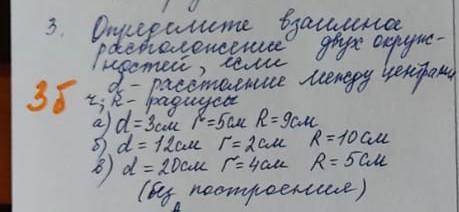 3. Определите взаимное
расположение двух окруж-
ностей, если
d - расстояние между центрами
3б
r; R - радиусы
а) d = 3см r = 5см R = 9см
б) d = 12см r = 2см R = 10см
в) d = 20см r = 4см R = 5см
(без построения)